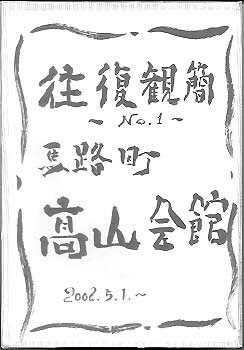 往復観簡
~ No.1 ~
馬路町
高山会館
2002.5.1.~